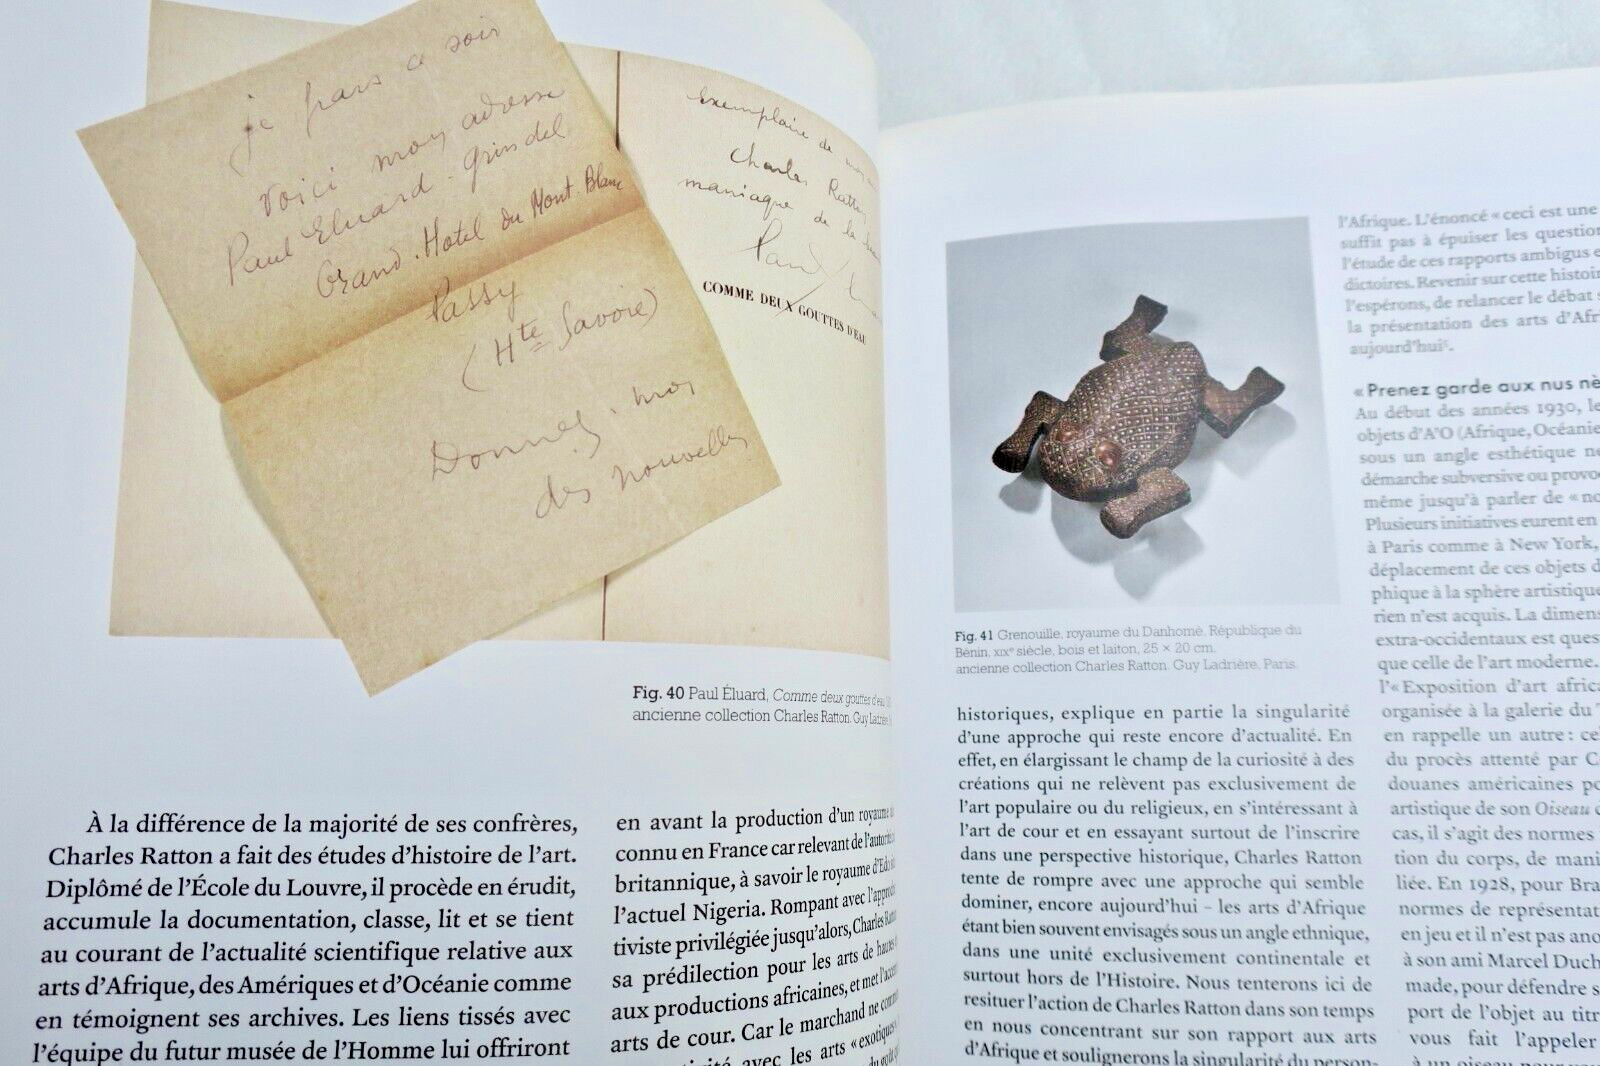 je pars ce soir
Voici mon adresse
Paul Eluard - Grindel
Grand-Hotel du Mont-Blanc
Passy
(Hte Savoie)
Donnez-moi
des nouvelles
exemplaire de
Charles Ratton
maniaque de la
Paul
COMME DEUX GOUTTES D'EAU
Fig. 40 Paul Éluard, Comme deux gouttes d'eau
ancienne collection Charles Ratton. Guy Ladrière,
À la différence de la majorité de ses confrères,
Charles Ratton a fait des études d'histoire de l'art.
Diplômé de l'École du Louvre, il procède en érudit,
accumule la documentation, classe, lit et se tient
au courant de l'actualité scientifique relative aux
arts d'Afrique, des Amériques et d'Océanie comme
en témoignent ses archives. Les liens tissés avec
l'équipe du futur musée de l'Homme lui offriront
en avant la production d'un royaume
connu en France car relevant de l'autorité
britannique, à savoir le royaume d'Edo
l'actuel Nigeria. Rompant avec l'approche
tiviste privilégiée jusqu'alors, Charles Ratton
sa prédilection pour les arts de hautes
aux productions africaines, et met l'accent
arts de cour. Car le marchand ne
avec les arts « exotiques »
du goût
Fig. 41 Grenouille, royaume du Danhomè, République du
Bénin, XIXe siècle, bois et laiton, 25 × 20 cm.
ancienne collection Charles Ratton. Guy Ladrière, Paris.
historiques, explique en partie la singularité
d'une approche qui reste encore d'actualité. En
effet, en élargissant le champ de la curiosité à des
créations qui ne relèvent pas exclusivement de
l'art populaire ou du religieux, en s'intéressant à
l'art de cour et en essayant surtout de l'inscrire
dans une perspective historique, Charles Ratton
tente de rompre avec une approche qui semble
dominer, encore aujourd'hui – les arts d'Afrique
étant bien souvent envisagés sous un angle ethnique,
dans une unité exclusivement continentale et
surtout hors de l'Histoire. Nous tenterons ici de
resituer l'action de Charles Ratton dans son temps
en nous concentrant sur son rapport aux arts
d'Afrique et soulignerons la singularité du person-
l'Afrique. L'énoncé « ceci est une
suffit pas à épuiser les question
l'étude de ces rapports ambigus e
dictoires. Revenir sur cette histoir
l'espérons, de relancer le débat s
la présentation des arts d'Afri
aujourd'hui⁵.
« Prenez garde aux nus nè
Au début des années 1930, le
objets d'A'O (Afrique, Océanie
sous un angle esthétique ne
démarche subversive ou provoc
même jusqu'à parler de « no
Plusieurs initiatives eurent en
à Paris comme à New York,
déplacement de ces objets d
phique à la sphère artistique
rien n'est acquis. La dimens
extra-occidentaux est quest
que celle de l'art moderne.
l'« Exposition d'art africa
organisée à la galerie du T
en rappelle un autre : cel
du procès attenté par C
douanes américaines po
artistique de son Oiseau
cas, il s'agit des normes
tion du corps, de mani
liée. En 1928, pour Bra
normes de représentat
en jeu et il n'est pas ano
à son ami Marcel Duch
made, pour défendre s
port de l'objet au titr
vous fait l'appeler
à un oiseau pour